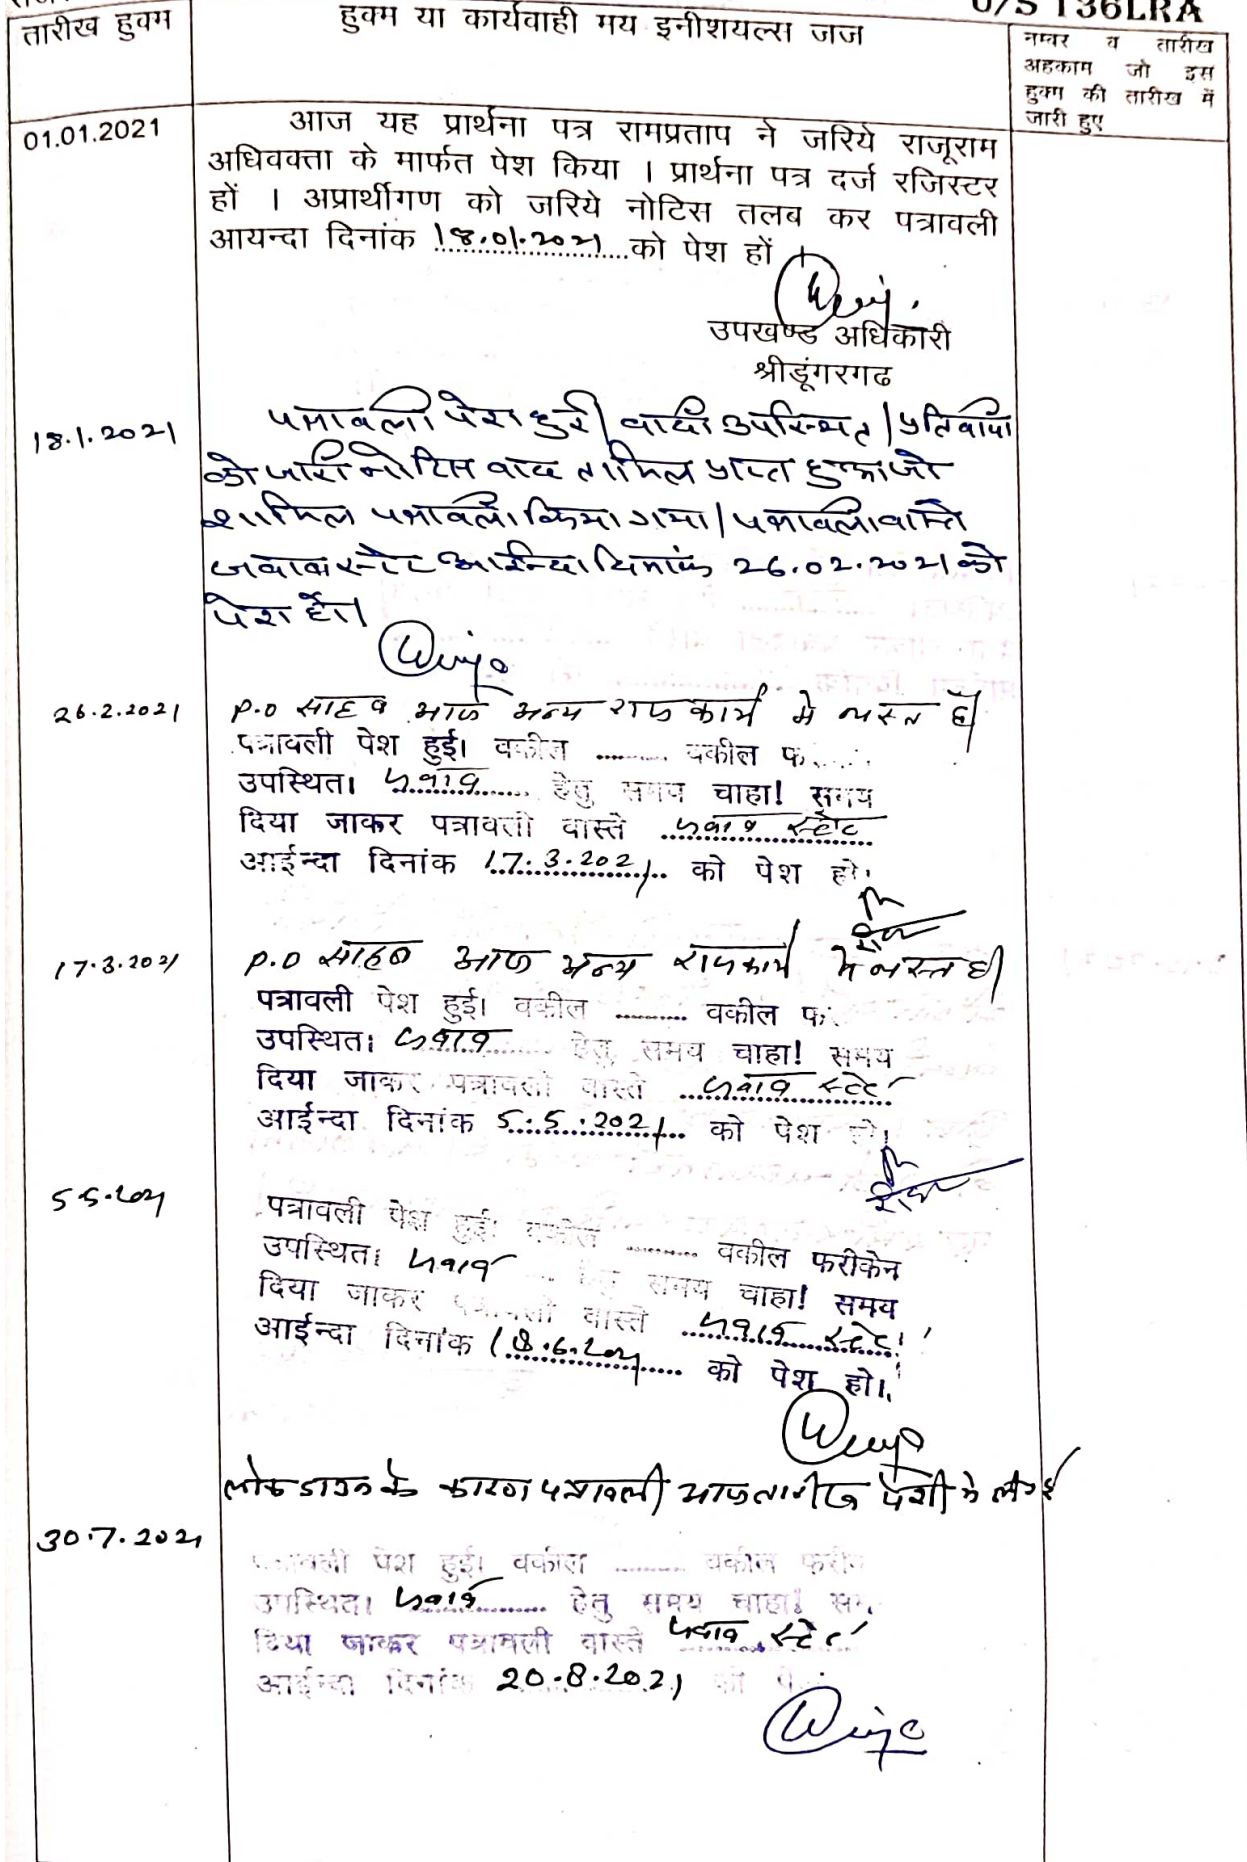 U/S 136LRA
तारीख हुक्म
हुक्म या कार्यवाही मय इनीशयल्स जज
नम्बर व तारीख
अहकाम जो इस
हुक्म की तारीख में
जारी हुए
01.01.2021
आज यह प्रार्थना पत्र रामप्रताप ने जरिये राजूराम
अधिवक्ता के मार्फत पेश किया । प्रार्थना पत्र दर्ज रजिस्टर
हों । अप्रार्थीगण को जरिये नोटिस तलब कर पत्रावली
आयन्दा दिनांक 18.01.2021 को पेश हों
उपखण्ड अधिकारी
श्रीडूंगरगढ
18.1.2021
पत्रावली पेश हुई। वादी उपस्थित। प्रतिवादी
को जारी नोटिस बाद तामिल प्राप्त हुआ जो
शामिल पत्रावली किया गया। पत्रावली वास्ते
जवाब स्टेट आईन्दा दिनांक 26.02.2021 को
पेश हो।
26.2.2021
P.O साहब आज अन्य राजकार्य में व्यस्त है।
पत्रावली पेश हुई। वकील ......... वकील फ
उपस्थित। जवाब हेतु समय चाहा! समय
दिया जाकर पत्रावली वास्ते जवाब स्टेट
आईन्दा दिनांक 17.3.2021 को पेश हो।
17.3.2021
P.O साहब आज अन्य राजकार्य में व्यस्त है।
पत्रावली पेश हुई। वकील ......... वकील फ
उपस्थित। जवाब हेतु समय चाहा! समय
दिया जाकर पत्रावली वास्ते जवाब स्टेट
आईन्दा दिनांक 5.5.2021 को पेश हो।
5.5.2021
पत्रावली पेश हुई। वकील ......... वकील फरीकेन
उपस्थित। जवाब हेतु समय चाहा! समय
दिया जाकर पत्रावली वास्ते जवाब स्टेट
आईन्दा दिनांक 18.6.2021 को पेश हो।
लोकडाउन के कारण पत्रावली आज तारीख पेशी में ली गई
30.7.2021
पत्रावली पेश हुई। वकील ......... वकील फरीक
उपस्थित। जवाब हेतु समय चाहा! सम
दिया जाकर पत्रावली वास्ते जवाब स्टेट
आईन्दा दिनांक 20.8.2021 को पे